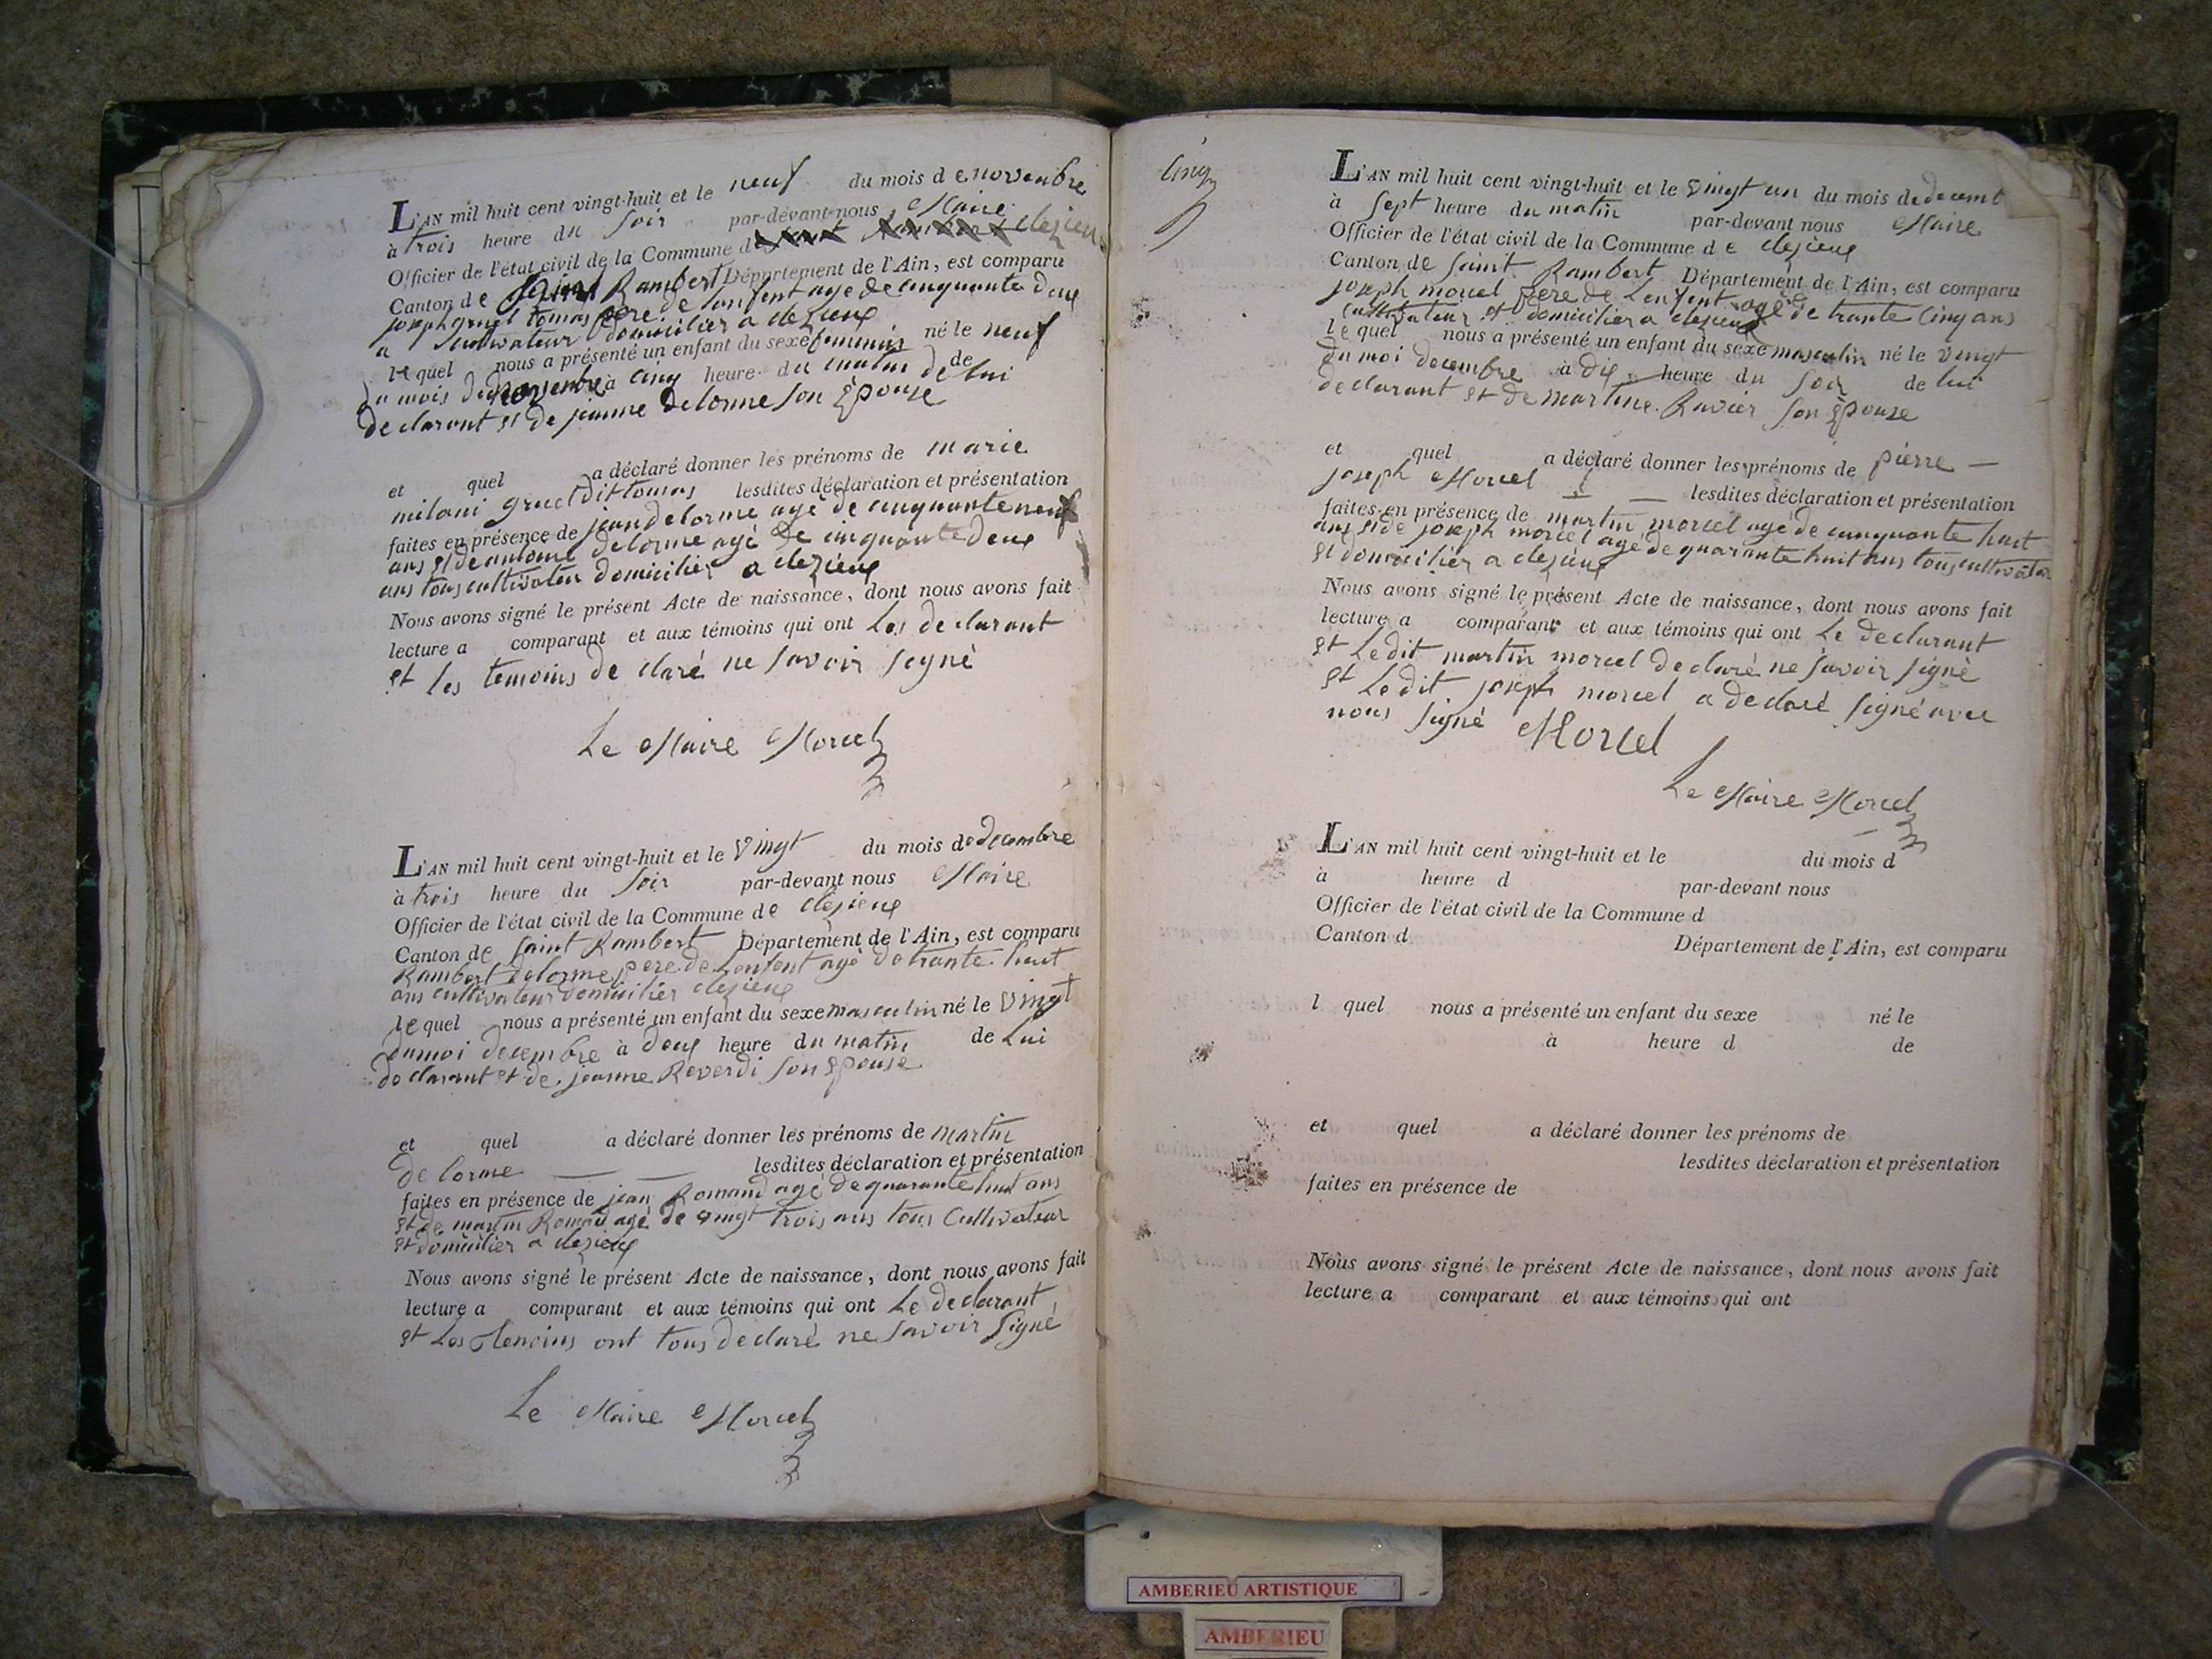 L'AN mil huit cent vingt-huit et le neuf du mois de novembre
à trois heure du soir par-devant nous Maire
Officier de l'état civil de la Commune d clezieux
Canton de Saint Rambert Département de l'Ain, est comparu
joseph gruel tomas pere de lenfent age de cinquante deux
a cultivateur domicilier a clezieux
lequel nous a présenté un enfant du sexe feminin né le neuf
du mois de novembre à cinq heure du matin de de lui
declarant et de jeanne delorme son Epouse
et quel a déclaré donner les prénoms de marie
milani gruel dit tomas lesdites déclaration et présentation
faites en présence de jean delorme agé de cinquante neuf
ans et de antoine delorme agé de cinquante deux
ans tous cultivateur domicilier a clezieux
Nous avons signé le présent Acte de naissance, dont nous avons fait
lecture a comparant et aux témoins qui ont Les declarant
et les temoins de claré ne savoir signé
Le Maire Morcel
L'AN mil huit cent vingt-huit et le vingt du mois de decembre
à trois heure du soir par-devant nous Maire
Officier de l'état civil de la Commune de clezieux
Canton de saint Rambert Département de l'Ain, est comparu
Rambert delorme pere de Lenfent agé de trante huit
ans cultivateur domicilier clezieux
lequel nous a présenté un enfant du sexe masculin né le vingt
du moi decembre à deux heure du matin de Lui
declarant et de jeanne Reverdi son Epouse
et quel a déclaré donner les prénoms de martin
de lorme lesdites déclaration et présentation
faites en présence de jean Romand agé de quarante huit ans
et de martin Romad agé de vingt trois ans tous Cultivateur
et domicilier a clezieux
Nous avons signé le présent Acte de naissance, dont nous avons fait
lecture a comparant et aux témoins qui ont Le declarant
et Les temoins ont tous declaré ne savoir signé
Le Maire Morcel
cinq
L'AN mil huit cent vingt-huit et le vingt un du mois de decemt
à sept heure du matin par-devant nous Maire
Officier de l'état civil de la Commune de clezieux
Canton de saint Rambert Département de l'Ain, est comparu
joseph morcel père de Lenfent agé de trante cinq ans
cultivateur et domicilier a clezieux
lequel nous a présenté un enfant du sexe masculin né le vingt
du moi decembre à dix heure du soir de lui
declarant et de martine Ravier son Epouse
et quel a déclaré donner les prénoms de pierre —
joseph Morcel — lesdites déclaration et présentation
faites en présence de martin morcel agé de cunquante huit
ans et de joseph morcel agé de quarante huit ans tous cultivateur
et domicilier a clezieux
Nous avons signé le présent Acte de naissance, dont nous avons fait
lecture a comparant et aux témoins qui ont Le declarant
et Ledit martin morcel declaré ne savoir signé
et Ledit joseph morcel a declaré signé avec
nous signé Morcel
Le Maire Morcel
L'AN mil huit cent vingt-huit et le du mois d
à heure d par-devant nous
Officier de l'état civil de la Commune d
Canton d Département de l'Ain, est comparu
l quel nous a présenté un enfant du sexe né le
à heure d de
et quel a déclaré donner les prénoms de
lesdites déclaration et présentation
faites en présence de
Nous avons signé le présent Acte de naissance, dont nous avons fait
lecture a comparant et aux témoins qui ont
AMBERIEU ARTISTIQUE
AMBERIEU